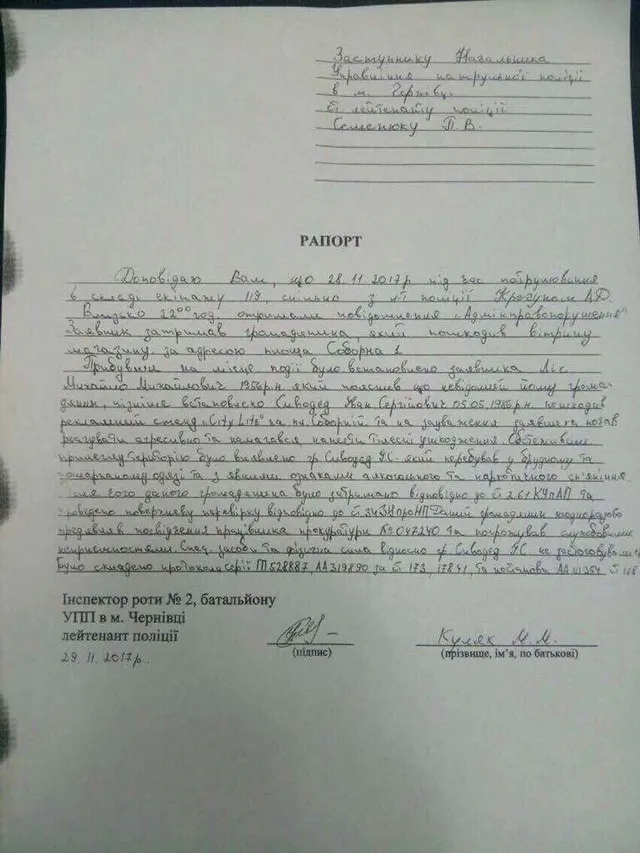 Заступнику Начальника
Управління патрульної поліції
в м. Чернівці
ст лейтенанту поліції
Семенюку П. В.
РАПОРТ
Доповідаю Вам, що 28.11.2017р під час патрулювання
в складі екіпажу 119, спільно з л-т поліції А.Р.
Близько 22⁰⁰ год. отримали повідомлення "Адмінправопорушення"
Заявник затримав громадянина, який пошкодив вітрину
магазину за адресою площа Соборна 1
Прибувши на місце події було встановлено заявника Ліс
Михайло Михайлович 1956р.н який пояснив що невідомий йому грома-
дянин, пізніше встановлено Сиводед Іван Сергійович 05.05.1986р.н. пошкодив
рекламний стенд "City Life" на пл. Соборній та на зауваження заявника почав
реагувати агресивно та намагався нанести тілесні ушкодження Обстеживши
прилеглу територію було виявлено гр. Сиводед І.С. який перебував у брудному та
пошарпаному одязі та з явними ознаками алкогольного та наркотичного сп'яніння
чого даного громадянина було затримано відповідно до ст 261 КУпАП та
проведено поверхневу перевірку відповідно до ст 34 ЗУ про НП Даний громадянин неодноразово
предявляв посвідчення працівника прокуратури №047240 та погрожував службовими
неприємностями. Спец. засоби та фізична сила відносно гр. Сиводед І.С. не застосовувались
було складено протоколи серії 528887, АА319890 за ст 173, 178ч1, та постанова АА ст
Інспектор роти № 2, батальйону
УПП в м. Чернівці
лейтенант поліції
29.11.2017р.
(підпис)
Куляк М. М.
(прізвище, ім'я, по батькові)